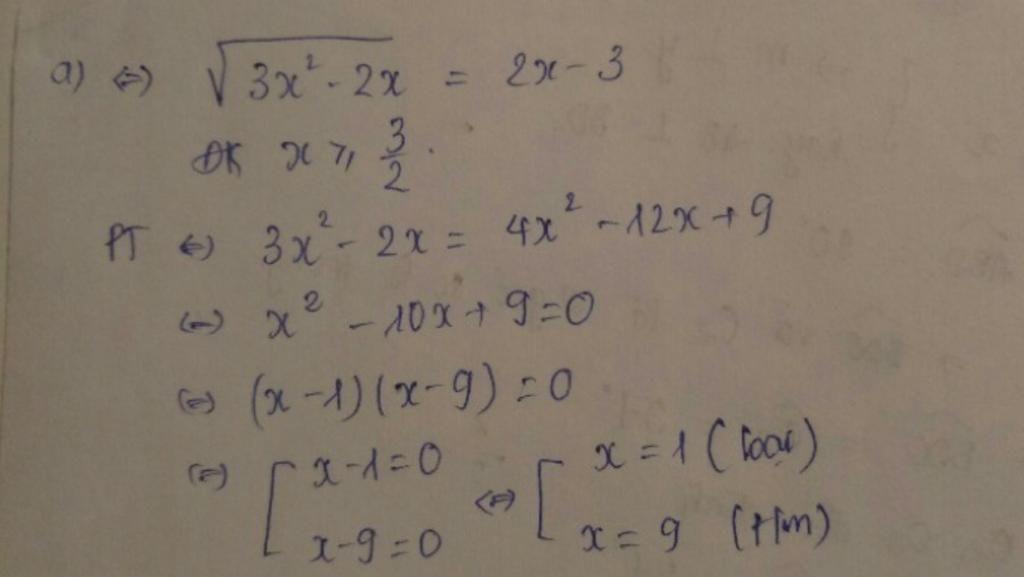 a) ⇔ √(3x² - 2x) = 2x - 3
ĐK x ≥ 3/2.
PT ⇔ 3x² - 2x = 4x² - 12x + 9
⇔ x² - 10x + 9 = 0
⇔ (x - 1)(x - 9) = 0
⇔ [ x - 1 = 0 ⇔ [ x = 1 (loại)
x - 9 = 0 x = 9 (t/m)